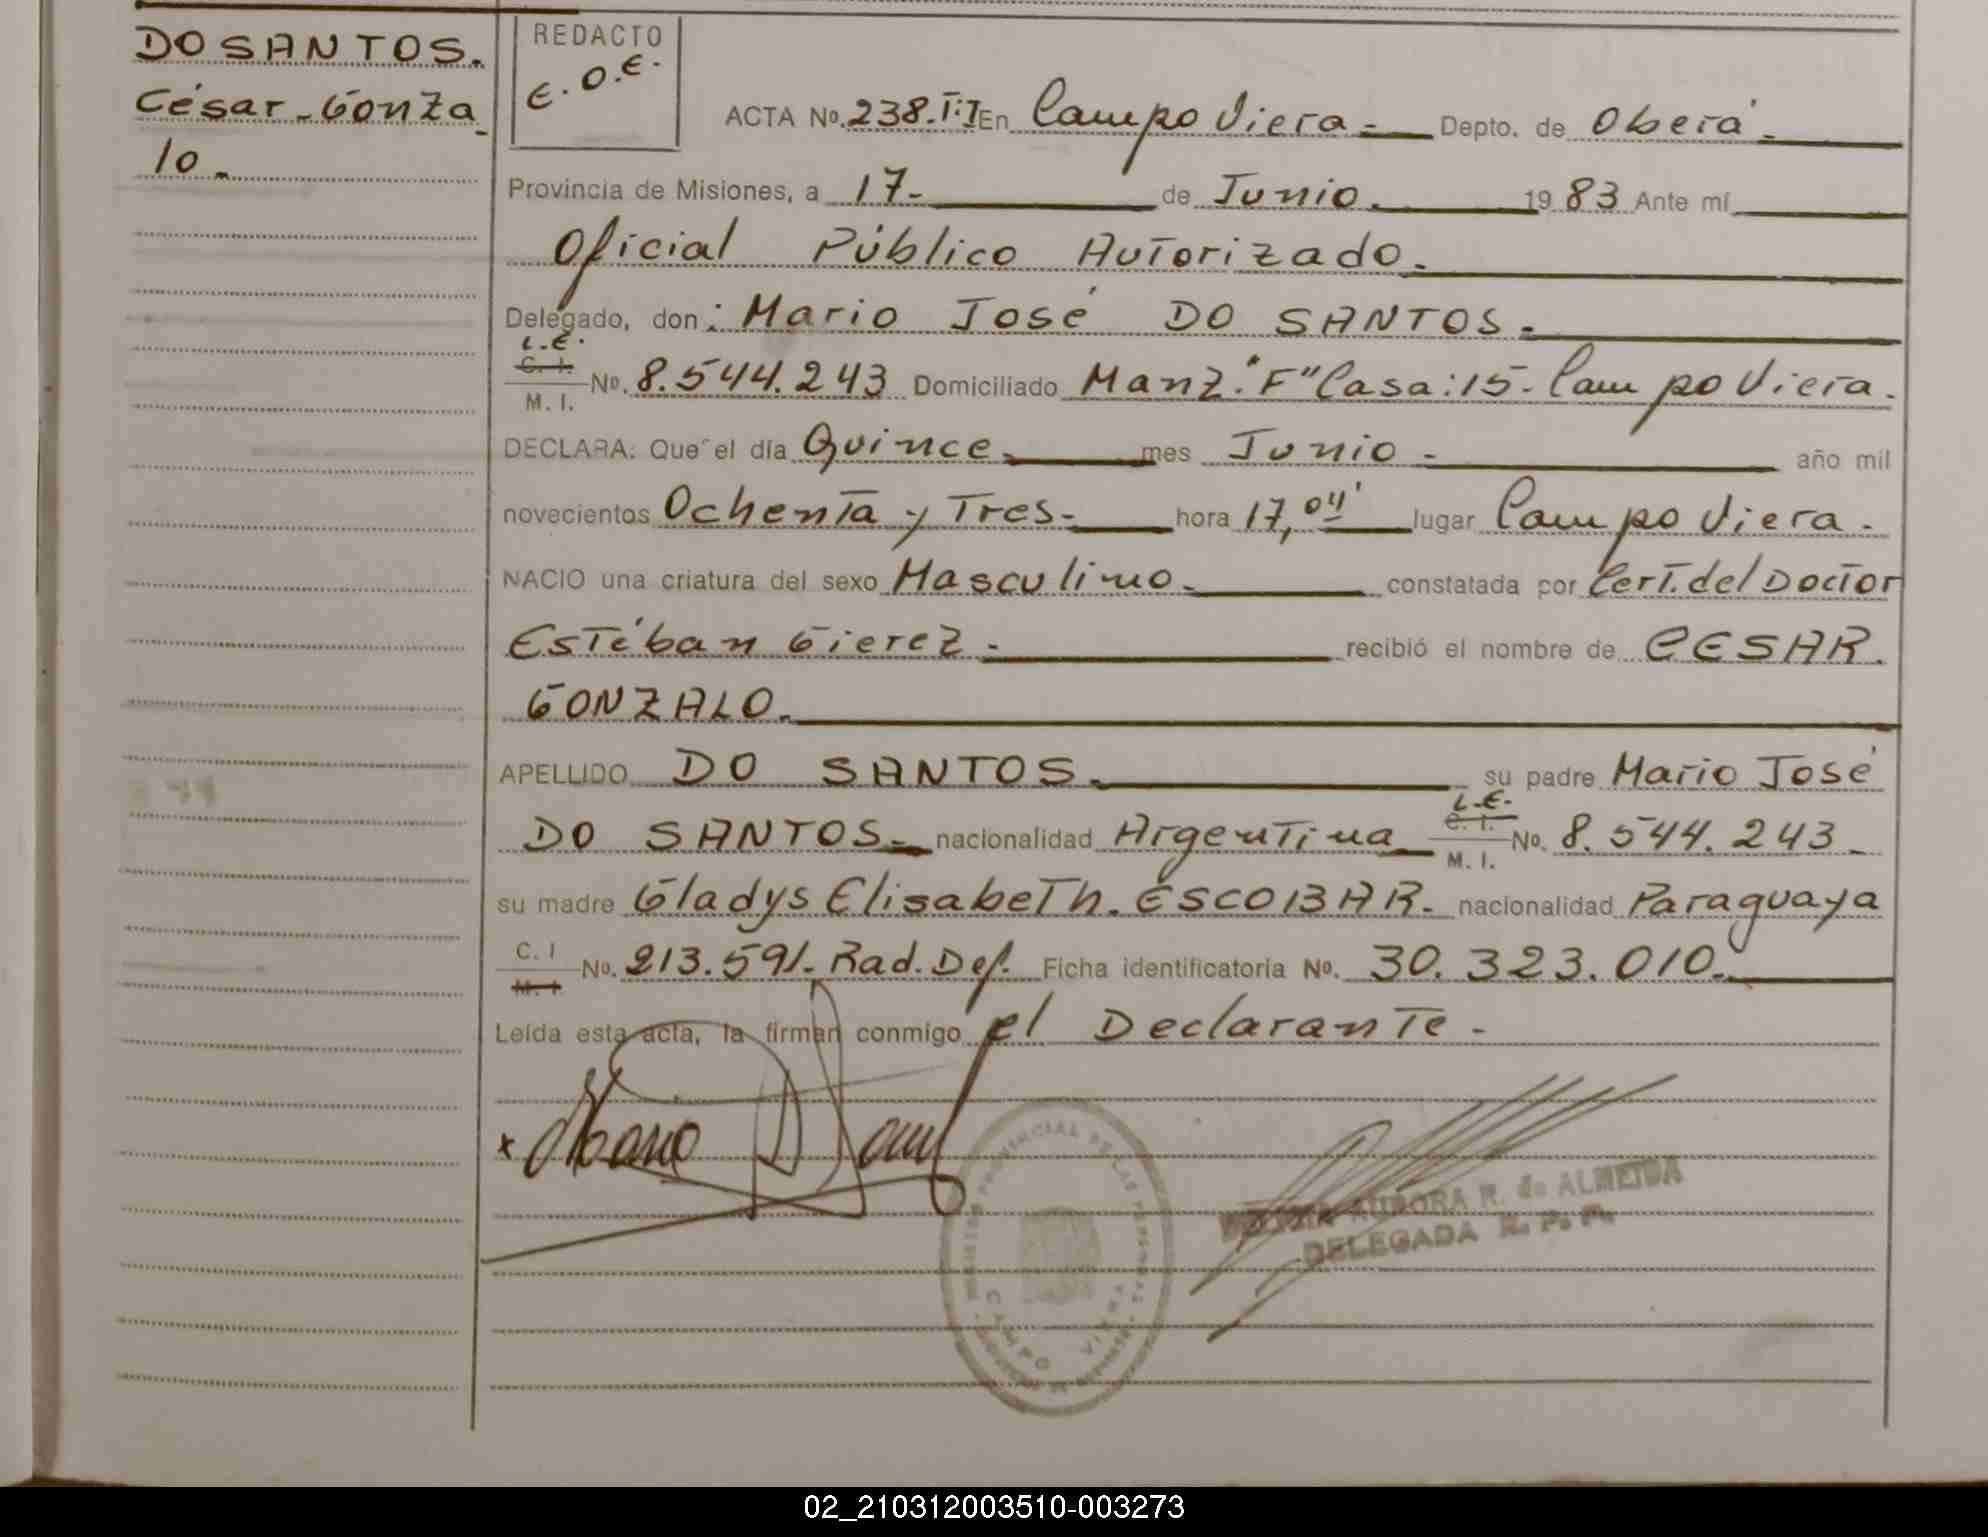 DO SANTOS.
César-Gonza
lo.
REDACTO
E.O.E.
ACTA No. 238.T:I En Campo Viera- Depto. de Oberá-
Provincia de Misiones, a 17- de Junio. 1983 Ante mí
Oficial Público Autorizado.
Delegado, don: Mario José DO SANTOS.
L.E.
C. I.
M. I.
No. 8.544.243 Domiciliado Manz."F" Casa:15- Campo Viera.
DECLARA: Que el día Quince. mes Junio - año mil
novecientos Ochenta y Tres- hora 17,04' lugar Campo Viera.
NACIO una criatura del sexo Masculino. constatada por Cert. del Doctor
Estéban Gierez. recibió el nombre de CESAR.
GONZALO.
APELLIDO DO SANTOS. su padre Mario José
L.E.
C. I.
M. I.
DO SANTOS- nacionalidad Argentina No. 8.544.243
su madre Gladys Elisabeth. ESCOBAR. nacionalidad Paraguaya
C. I
M. I
No. 213.591. Rad. Def. Ficha identificatoria No. 30.323.010.
Leída esta acta, la firman conmigo el Declarante.
x Mario
PROVINCIAL DE LAS PERSONAS
CAMPO VIERA
AURORA R. de ALMEIDA
DELEGADA R. P. P.
02_210312003510-003273